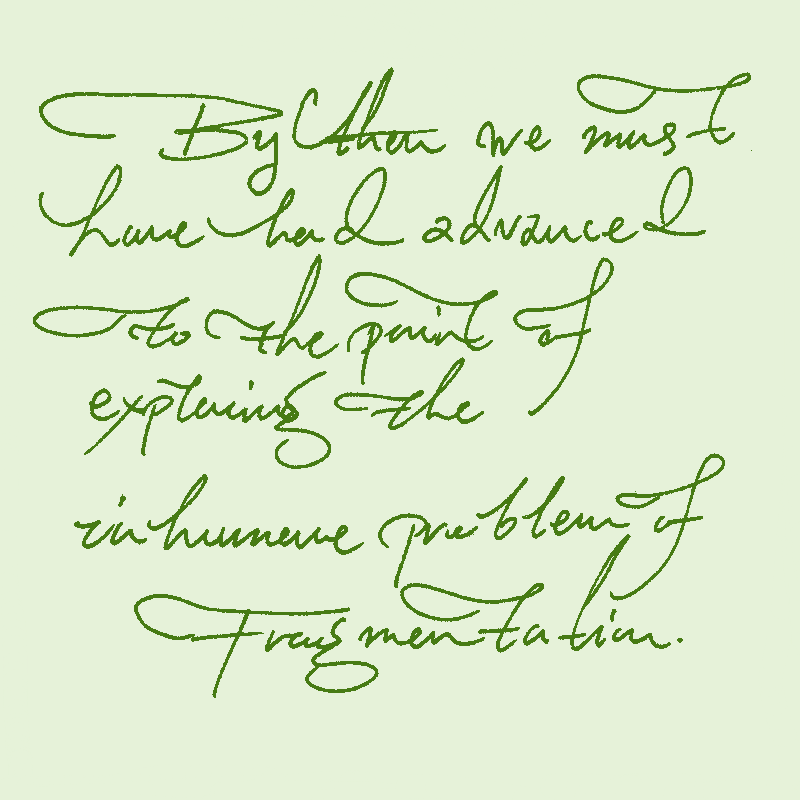 By then we must
have had advanced
to the point of
exploring the
inhumane problem of
Fragmentation.